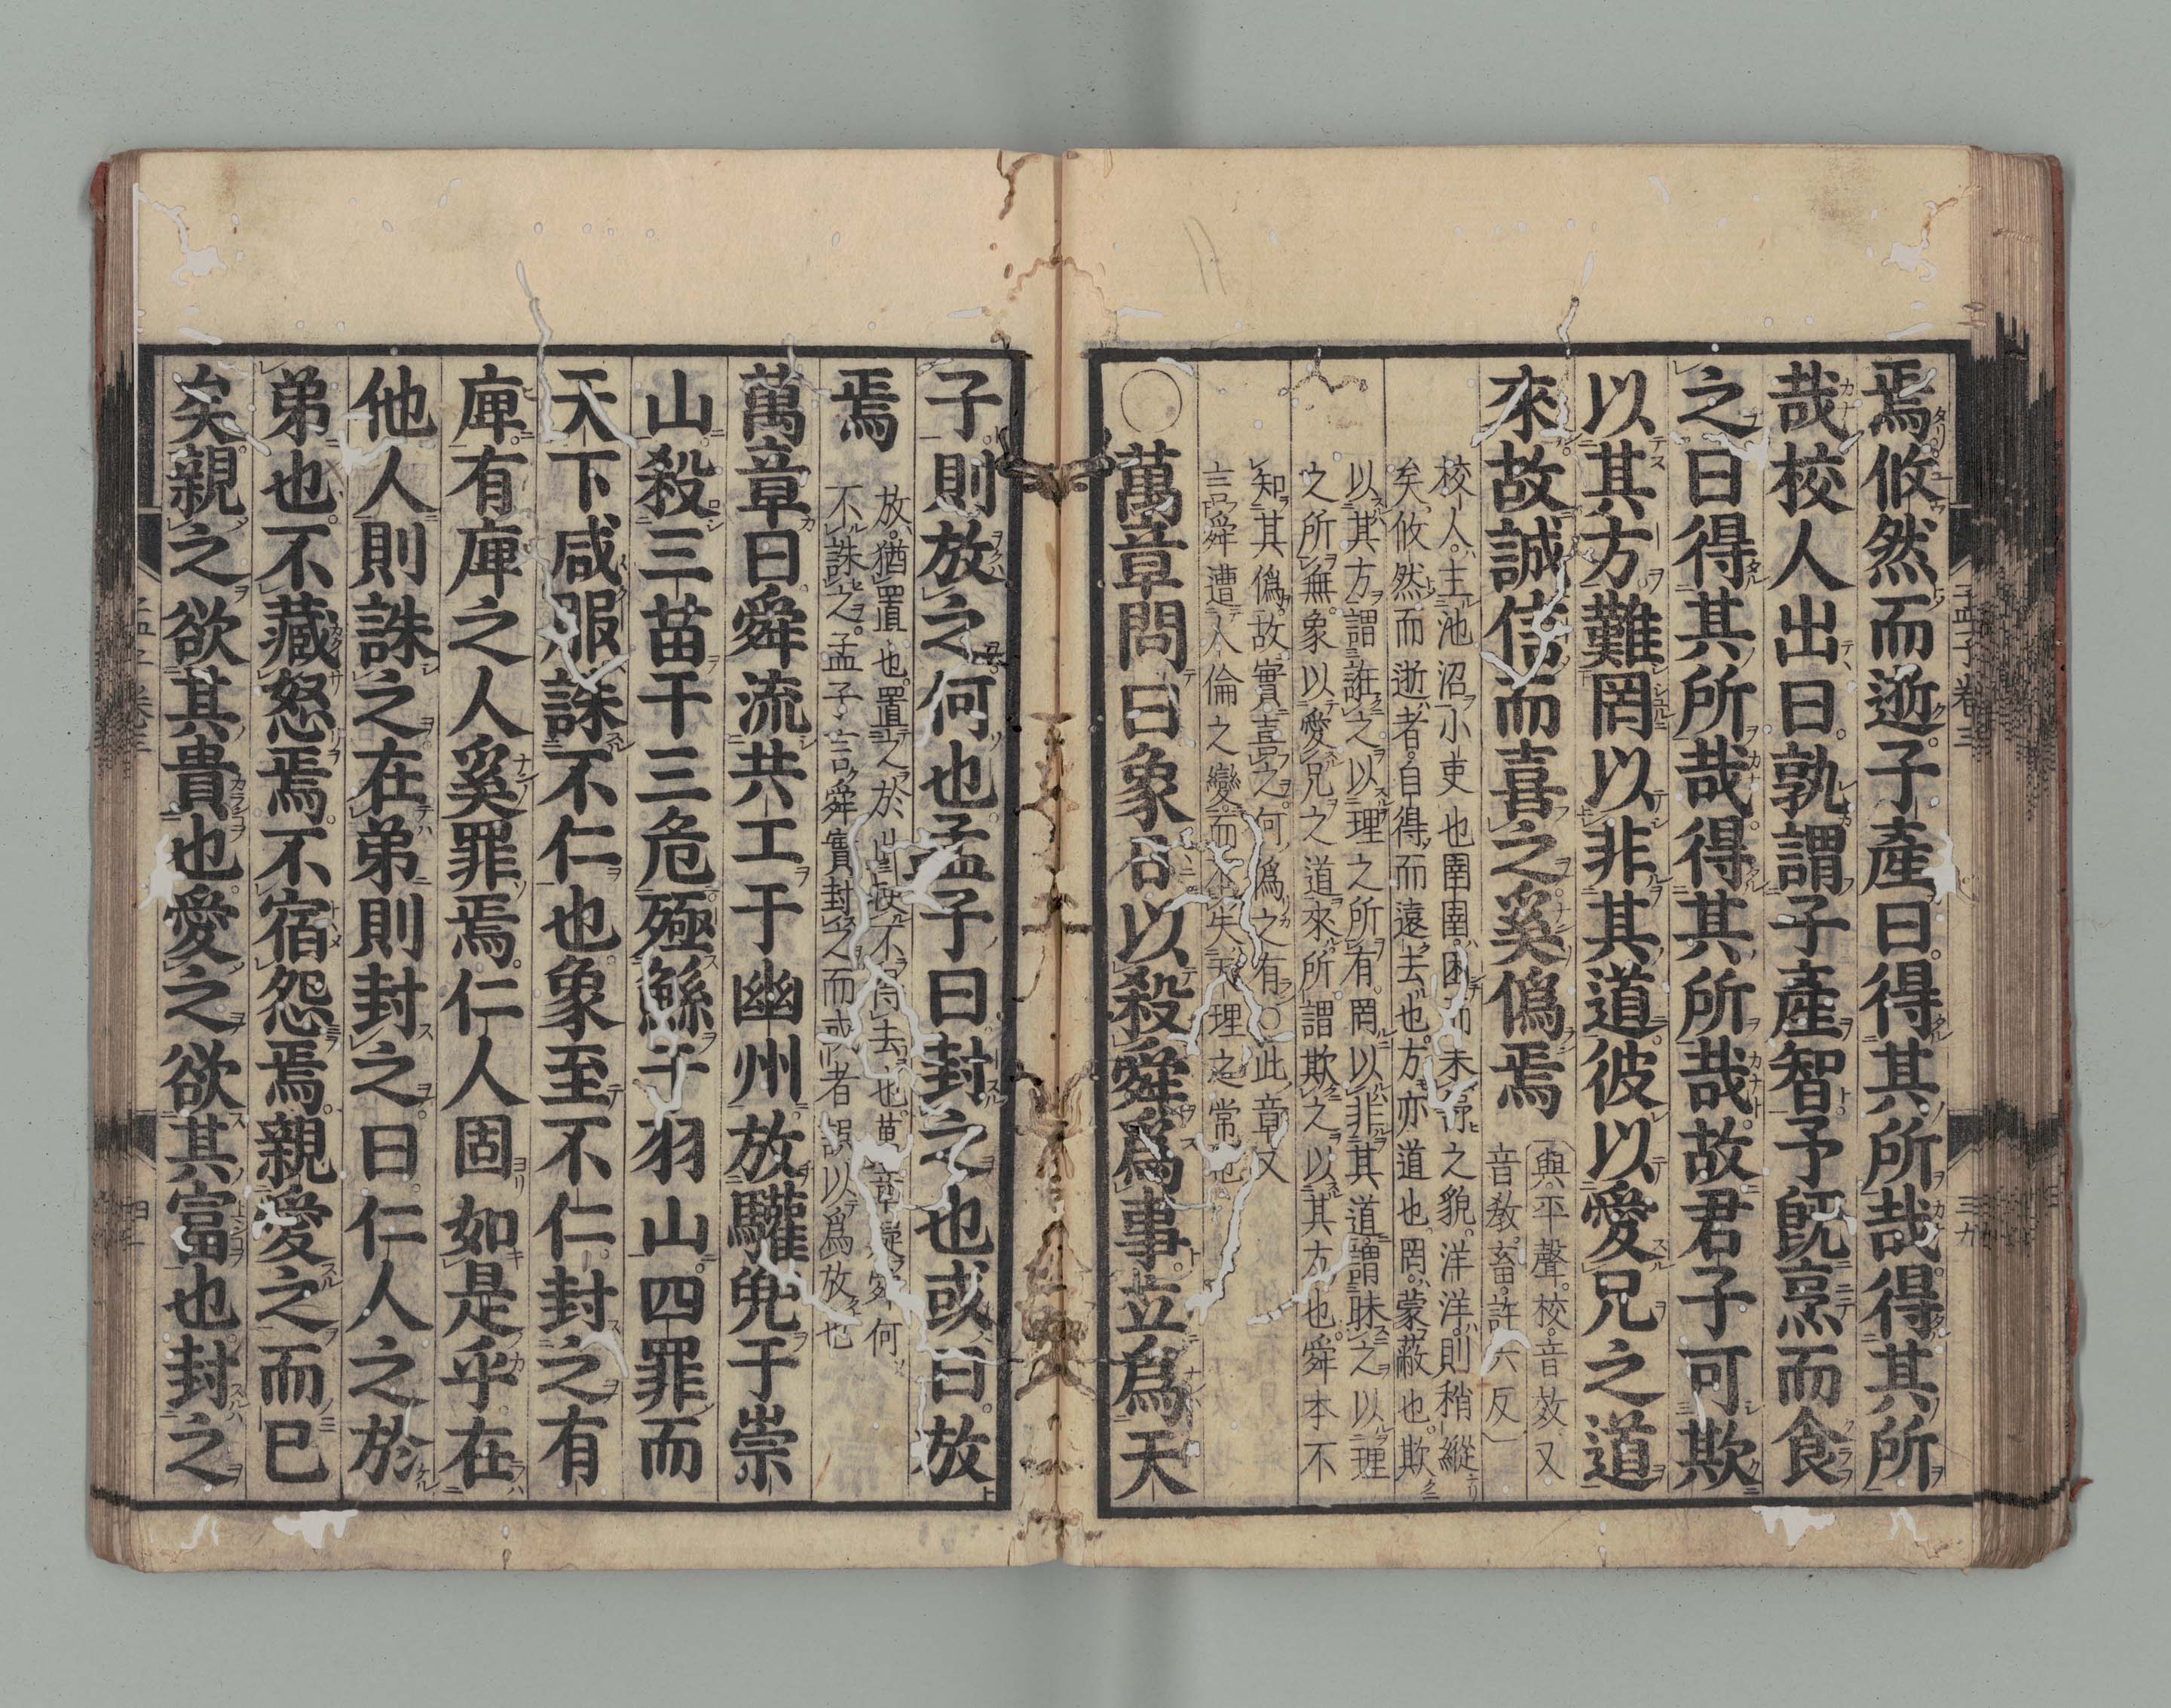 焉攸然而逝子產曰得其所哉得其所
哉校人出曰孰謂子產智予既烹而食
之曰得其所哉得其所哉故君子可欺
以其方難罔以非其道彼以愛兄之道
來故誠信而喜之奚僞焉
與平聲校音效又
音敎畜許六反
校人主池沼小吏也圉圉困而未舒之貌洋洋則稍縱
矣攸然而逝者自得而遠去也方亦道也罔蒙蔽也欺
以其方謂誑之以理之所有罔以非其道謂昧之以理
之所無象以愛兄之道來所謂欺之以其方也舜本不
知其僞故實喜之何僞之有○此章又
言舜遭人倫之變而不失天理之常也
○萬章問曰象日以殺舜爲事立爲天
子則放之何也孟子曰封之也或曰放
焉
放猶置也置之於此使不得去也萬章疑舜何
不誅之孟子言舜實封之而或者誤以爲放也
萬章曰舜流共工于幽州放驩兜于崇
山殺三苗于三危殛鯀于羽山四罪而
天下咸服誅不仁也象至不仁封之有
庳有庳之人奚罪焉仁人固如是乎在
他人則誅之在弟則封之曰仁人之於
弟也不藏怒焉不宿怨焉親愛之而已
矣親之欲其貴也愛之欲其富也封之
孟子卷三
三九